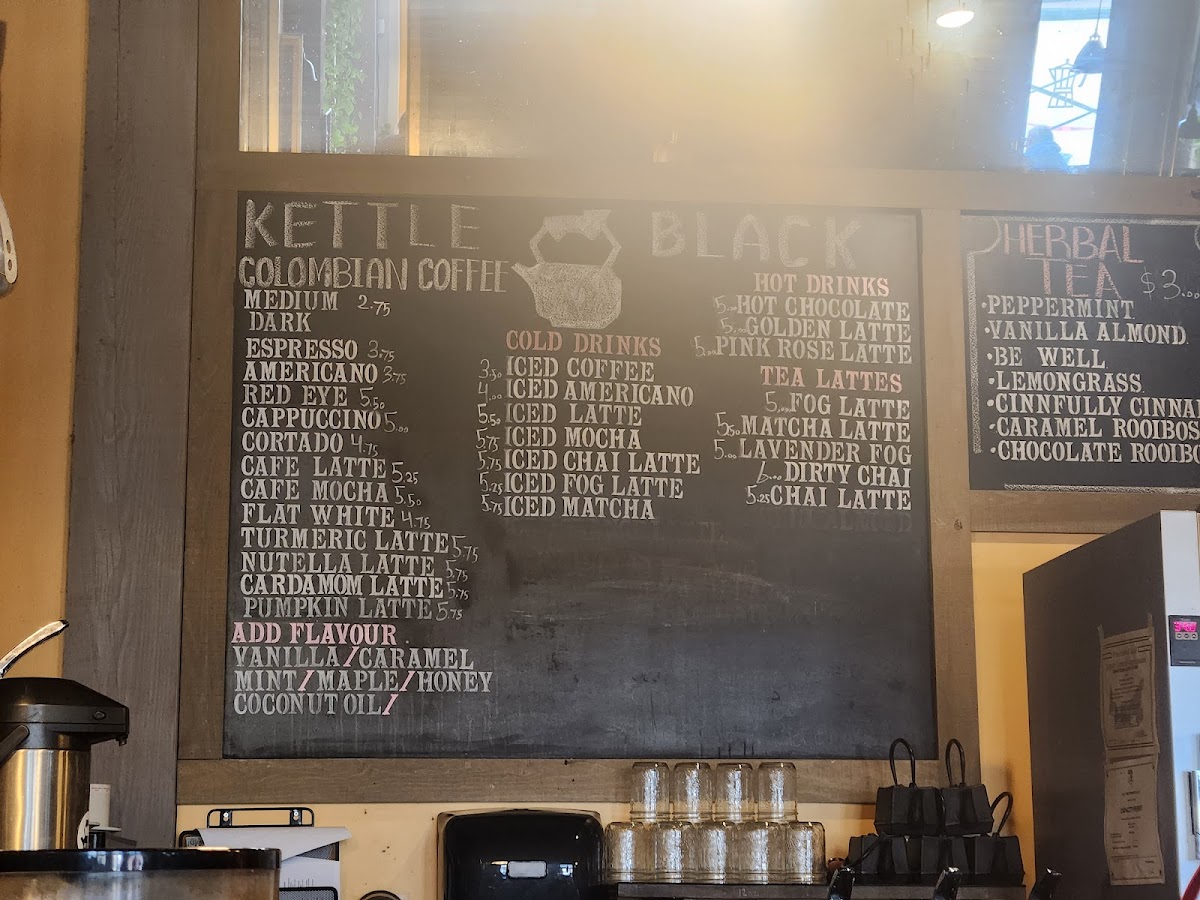 KETTLE BLACK
COLOMBIAN COFFEE
MEDIUM 2.75
DARK
ESPRESSO 3.75
AMERICANO 3.75
RED EYE 5.50
CAPPUCCINO 5.00
CORTADO 4.75
CAFE LATTE 5.25
CAFE MOCHA 5.50
FLAT WHITE 4.75
TURMERIC LATTE 5.75
NUTELLA LATTE 5.75
CARDAMOM LATTE 5.75
PUMPKIN LATTE 5.75
ADD FLAVOUR
VANILLA/CARAMEL
MINT/MAPLE/HONEY
COCONUT OIL/
COLD DRINKS
3.50 ICED COFFEE
4.00 ICED AMERICANO
5.50 ICED LATTE
5.75 ICED MOCHA
5.75 ICED CHAI LATTE
5.25 ICED FOG LATTE
5.75 ICED MATCHA
HOT DRINKS
5.00 HOT CHOCOLATE
5.00 GOLDEN LATTE
5.00 PINK ROSE LATTE
TEA LATTES
5.00 FOG LATTE
5.50 MATCHA LATTE
5.00 LAVENDER FOG
6.00 DIRTY CHAI
5.25 CHAI LATTE
HERBAL
TEA $3.00
•PEPPERMINT
•VANILLA ALMOND
•BE WELL
•LEMONGRASS
•CINNFULLY CINNA
•CARAMEL ROOIBOS
•CHOCOLATE ROOIBO